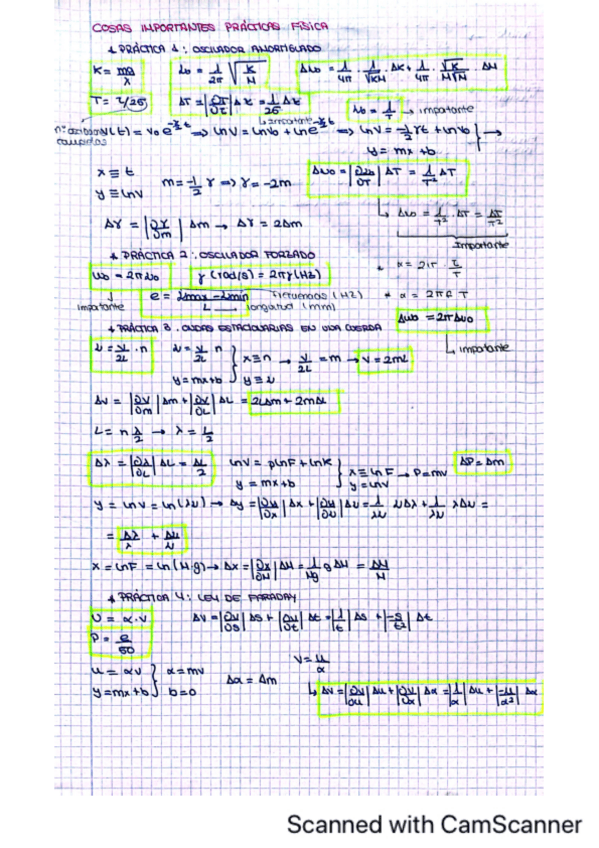 COSAS IMPORTANTES PRÁCTICAS FÍSICA
PRÁCTICA 1: OSCILADOR AMORTIGUADO
K = mg/λ
ν₀ = 1/2π √(K/M)
Δν₀ = 1/4π · 1/√(KM) ΔK + 1/4π · √K/(M√M) · ΔM
T = t/25
ΔT = |∂T/∂t| Δt = 1/25 Δt
ν₀ = 1/T → importante
importante
V(t) = V₀ e^(-γ/2 t) ⇒ lnV = lnV₀ + lne^(-γ/2 t) ⇒ lnV = -1/2 γt + lnV₀ →
y = mx + b
x ≡ t
y ≡ lnV
m = -1/2 γ ⇒ γ = -2m
Δν₀ = |∂ν₀/∂T| ΔT = 1/T² ΔT
Δγ = |∂γ/∂m| Δm → Δγ = 2Δm
Δν₀ = 1/T² · ΔT = ΔT/T²
Importante
PRÁCTICA 2: OSCILADOR FORZADO
ω₀ = 2πν₀
γ(rad/s) = 2πγ(Hz)
importante
Frecuencias (Hz)
L → longitud (mm)
Δω₀ = 2πΔν₀
importante
PRÁCTICA 3. ONDAS ESTACIONARIAS EN UNA CUERDA
ν = V/2L · n
ν = V/2L n
y = mx + b
x ≡ n
y ≡ ν
→ V/2L = m → V = 2mL
ΔV = |∂V/∂m| Δm + |∂V/∂L| ΔL = 2LΔm + 2mΔL
L = n λ/2 → λ = L/2
Δλ = |∂λ/∂L| ΔL = ΔL/2
lnV = plnF + lnK
y = mx + b
x ≡ lnF → P = m
y = lnV
ΔP = Δm
y = lnV = ln(λν) → Δy = |∂y/∂λ| Δλ + |∂y/∂ν| Δν = 1/λν νΔλ + 1/λν λΔν =
= Δλ/λ + Δν/ν
x = lnF = ln(M·g) → Δx = |∂x/∂M| ΔM = 1/Mg g ΔM = ΔM/M
PRÁCTICA 4: LEY DE FARADAY
U = α·v
ΔV = |∂V/∂s| Δs + |∂V/∂t| Δt = |1/t| Δs + |-s/t²| Δt
P = e/50
u = αv
y = mx + b
α = m
b = 0
Δα = Δm
V = u/α
ΔV = |∂V/∂u| Δu + |∂V/∂α| Δα = |1/α| Δu + |-u/α²| Δα
Scanned with CamScanner